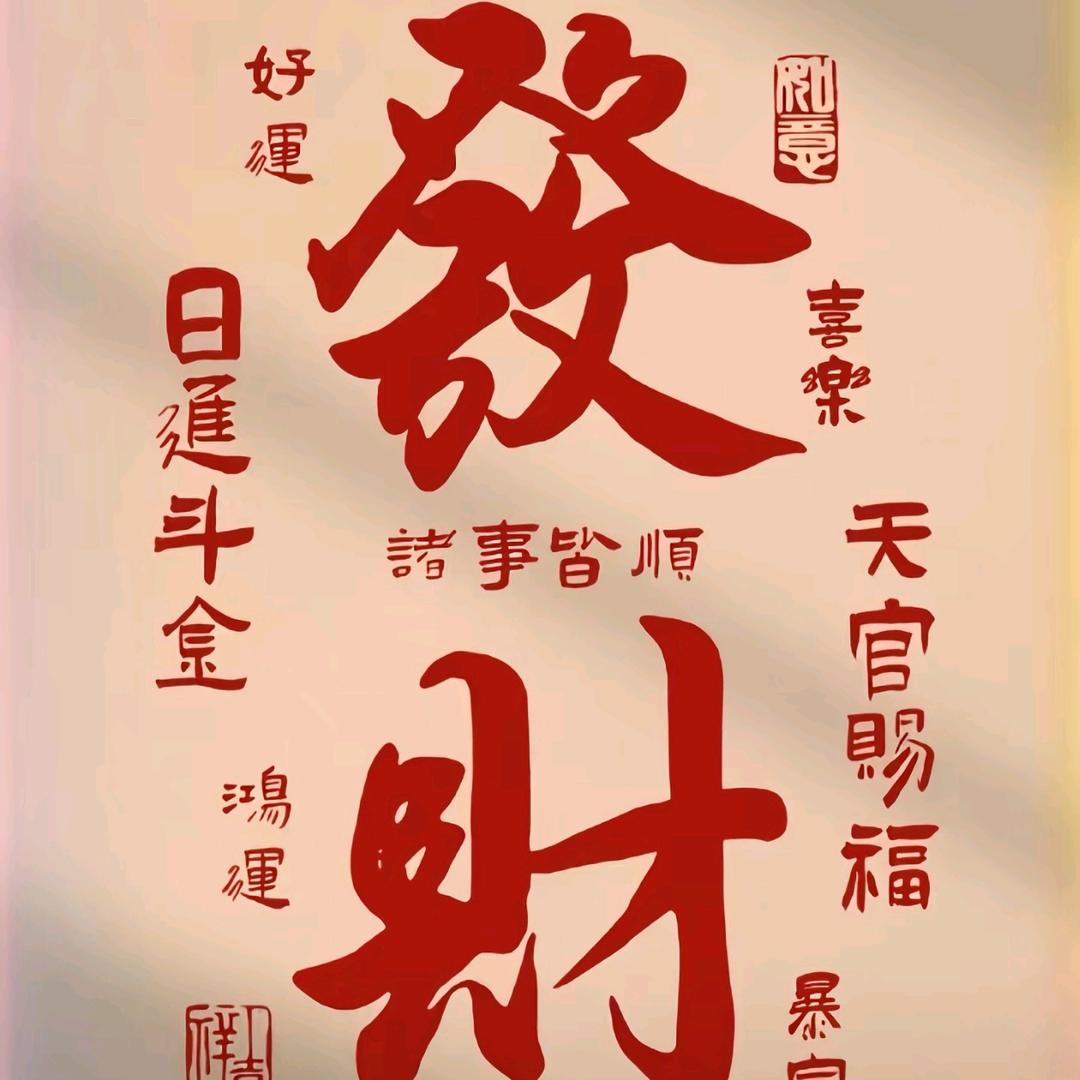 發
財
諸事皆順
好運
日進斗金
鴻運
如意
喜樂
天官賜福
暴富
吉祥